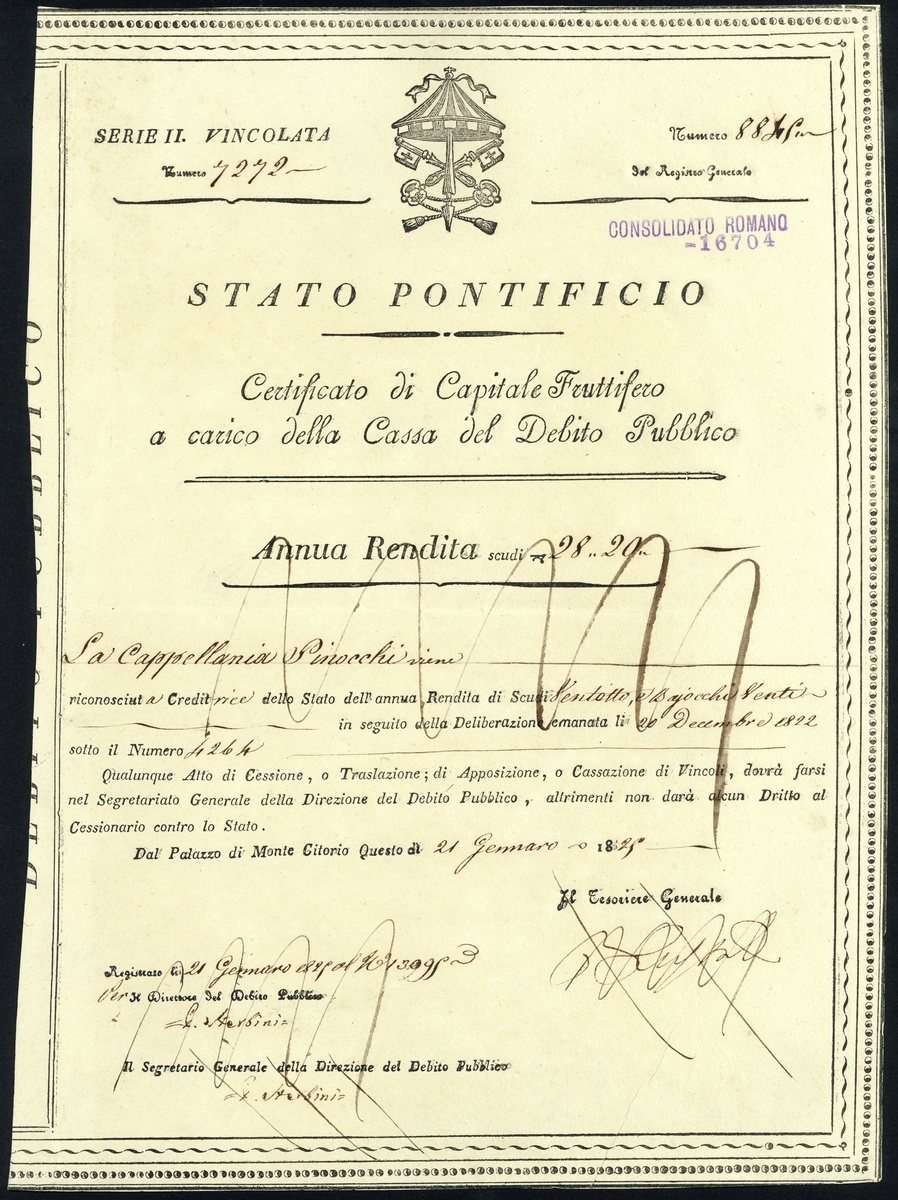 SERIE II. VINCOLATA
Numero 7272
Numero 8845
del Registro Generale
CONSOLIDATO ROMANO
-16704
STATO PONTIFICIO
Certificato di Capitale Fruttifero
a carico della Cassa del Debito Pubblico
Annua Rendita scudi 28 .. 20 ..
La Cappellania Pinocchi viene
riconosciuta Creditrice dello Stato dell'annua Rendita di Scudi Ventotto, e Bajocchi Venti
in seguito della Deliberazione emanata li 20 Decembre 1822
sotto il Numero 4264
Qualunque Atto di Cessione, o Traslazione; di Apposizione, o Cassazione di Vincoli, dovrà farsi
nel Segretariato Generale della Direzione del Debito Pubblico, altrimenti non darà alcun Dritto al
Cessionario contro lo Stato.
Dal Palazzo di Monte Citorio Questo dì 21 Gennaro 1825
Il Tesoriere Generale
Registrato li 21 Gennaro 1825 al N° 13995
Per Il Direttore del Debito Pubblico
Il Segretario Generale della Direzione del Debito Pubblico
DEBITO PUBBLICO